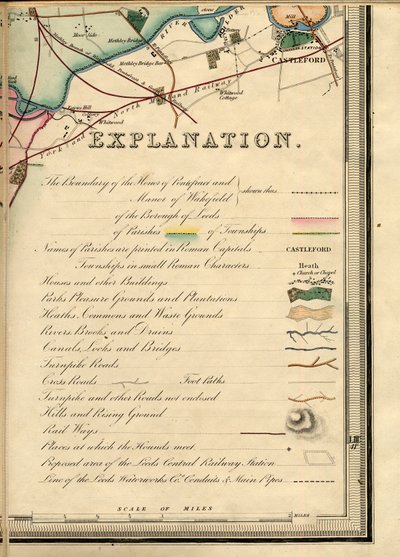 RIVER
CALDER
Mill
STATION
CASTLEFORD
Moor Side
Methley Bridge
Methley Bridge Bar
Pottery
Whitwood
Cottage
Fairies Hill
Whitwood
York and North Midland Railway
EXPLANATION.
The Boundary of the Honor of Pontefract and
Manor of Wakefield } shewn thus
of the Borough of Leeds
of Parishes of Townships
Names of Parishes are printed in Roman Capitals CASTLEFORD
Townships in small Roman Characters Heath
Church or Chapel
Houses and other Buildings
Parks Pleasure Grounds and Plantations
Heaths, Commons and Waste Grounds
Rivers, Brooks and Drains
Canals, Locks and Bridges
Turnpike Roads
Cross Roads Foot Paths
Turnpike and other Roads not enclosed
Hills and Rising Ground
Rail Ways
Places at which the Hounds meet
Proposed area of the Leeds Central Railway Station
Line of the Leeds Waterworks Co. Conduits & Main Pipes
SCALE OF MILES
MILES